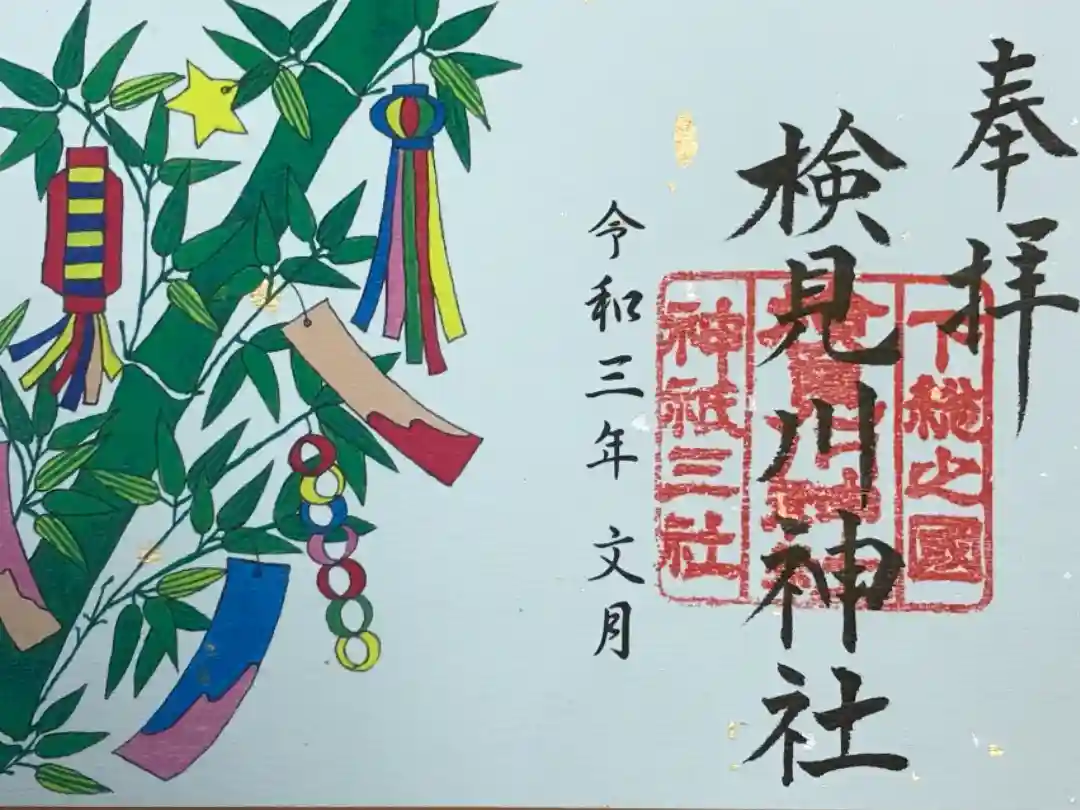 奉拝
検見川神社
令和三年 文月
下総之國
検見川神社
神祇三社